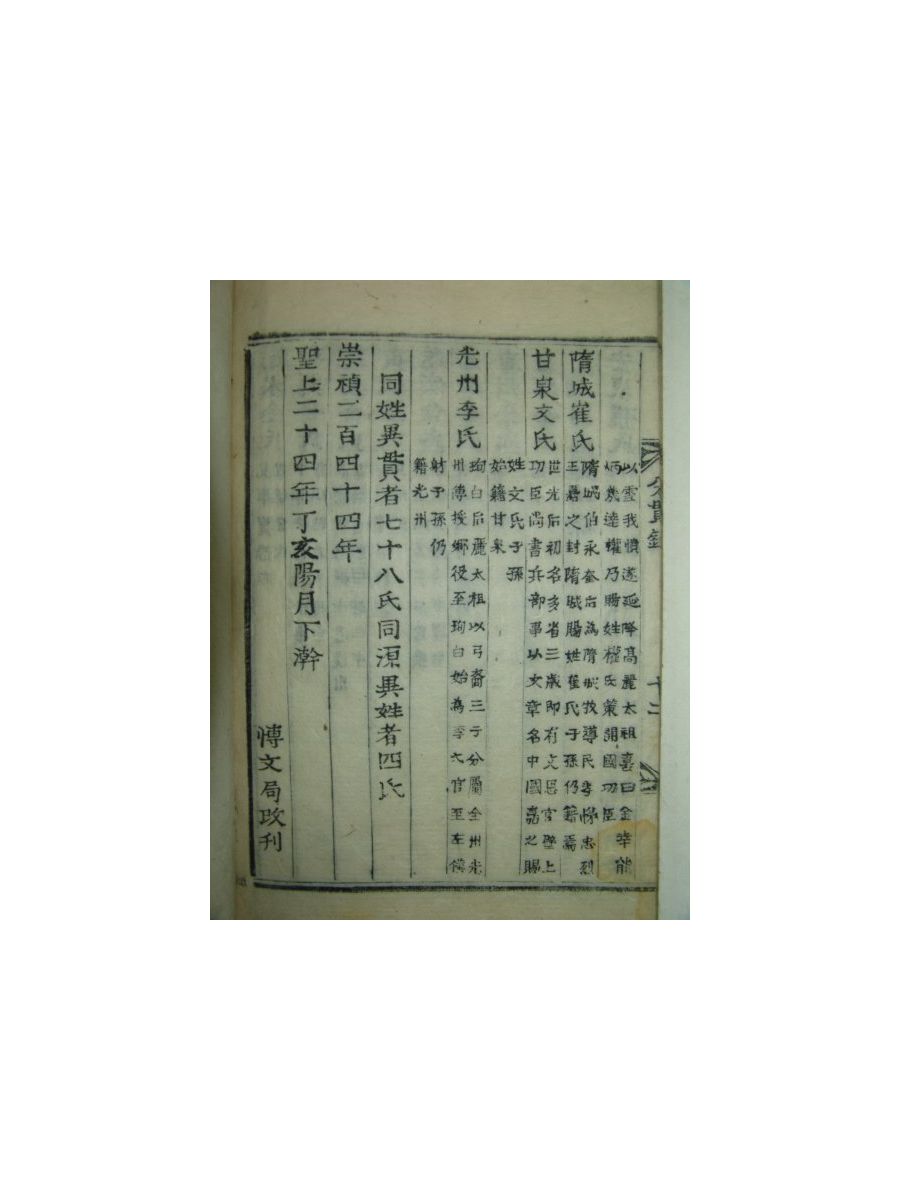 分貫錄
十二
以雪我憤遂延降高麗太祖喜曰金幸能
炳幾達權乃賜姓權氏策調國功臣
隋城崔氏
隋城伯永奎后為隋城牧導民孝悌忠烈
王嘉之封隋城賜姓崔氏子孫仍籍焉
甘泉文氏
世光后初名多省三歲即有文思官壁上
功臣尚書兵部事以文章名中國嘉之賜
姓文氏子孫
始籍甘泉
光州李氏
珣白后麗太祖以弓裔三子分屬全州光
州傳授鄉役至珣白始為李六官至左僕
射子孫仍
籍光州
同姓異貫者七十八氏同源異姓者四氏
崇禎二百四十四年
聖上二十四年丁亥陽月下澣
博文局改刊